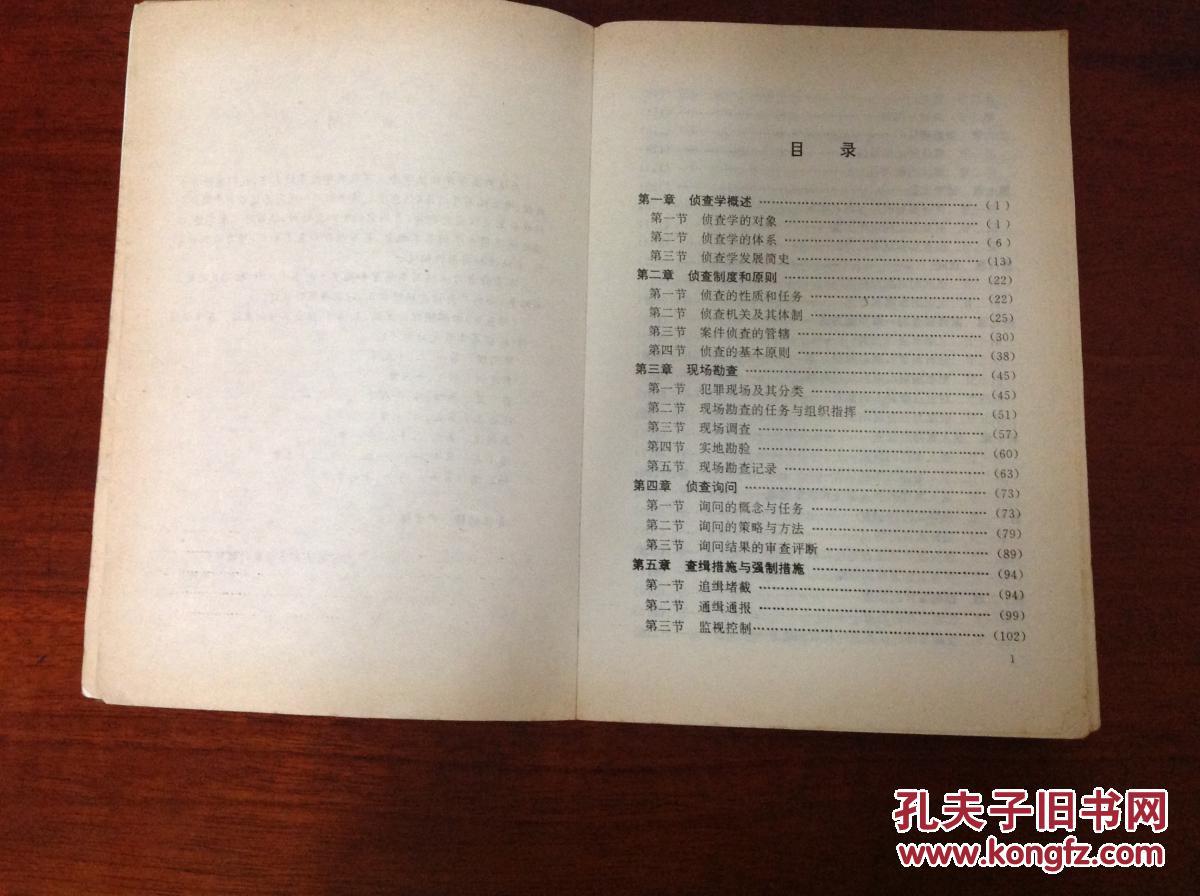 目 录
第一章 侦查学概述 ……………………………… (1)
第一节 侦查学的对象 ……………………………… (1)
第二节 侦查学的体系 ……………………………… (6)
第三节 侦查学发展简史 ……………………………… (13)
第二章 侦查制度和原则 ……………………………… (22)
第一节 侦查的性质和任务 ……………………………… (22)
第二节 侦查机关及其体制 ……………………………… (25)
第三节 案件侦查的管辖 ……………………………… (30)
第四节 侦查的基本原则 ……………………………… (38)
第三章 现场勘查 ……………………………… (45)
第一节 犯罪现场及其分类 ……………………………… (45)
第二节 现场勘查的任务与组织指挥 ……………………………… (51)
第三节 现场调查 ……………………………… (57)
第四节 实地勘验 ……………………………… (60)
第五节 现场勘查记录 ……………………………… (63)
第四章 侦查询问 ……………………………… (73)
第一节 询问的概念与任务 ……………………………… (73)
第二节 询问的策略与方法 ……………………………… (79)
第三节 询问结果的审查评断 ……………………………… (89)
第五章 查缉措施与强制措施 ……………………………… (94)
第一节 追缉堵截 ……………………………… (94)
第二节 通缉通报 ……………………………… (99)
第三节 监视控制 ……………………………… (102)
1
孔夫子旧书网
www.kongfz.com